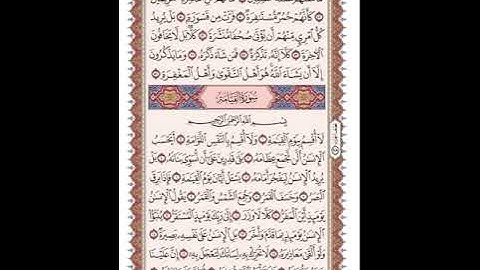 كَأَنَّهُمْ حُمُرٌ مُّسْتَنفِرَةٌ ۝ فَرَّتْ مِن قَسْوَرَةٍ ۝ بَلْ يُرِيدُ
كُلُّ ٱمْرِئٍ مِّنْهُمْ أَن يُؤْتَىٰ صُحُفًا مُّنَشَّرَةً ۝ كَلَّا بَل لَّا يَخَافُونَ
ٱلْءَاخِرَةَ ۝ كَلَّا إِنَّهُۥ تَذْكِرَةٌ ۝ فَمَن شَآءَ ذَكَرَهُۥ ۝ وَمَا يَذْكُرُونَ
إِلَّا أَن يَشَآءَ ٱللَّهُ هُوَ أَهْلُ ٱلتَّقْوَىٰ وَأَهْلُ ٱلْمَغْفِرَةِ ۝
سُورَةُ القِيَامَةِ
بِسْمِ ٱللَّهِ ٱلرَّحْمَٰنِ ٱلرَّحِيمِ
لَآ أُقْسِمُ بِيَوْمِ ٱلْقِيَٰمَةِ ۝ وَلَآ أُقْسِمُ بِٱلنَّفْسِ ٱللَّوَّامَةِ ۝ أَيَحْسَبُ
ٱلْإِنسَٰنُ أَلَّن نَّجْمَعَ عِظَامَهُۥ ۝ بَلَىٰ قَٰدِرِينَ عَلَىٰٓ أَن نُّسَوِّيَ بَنَانَهُۥ ۝ بَلْ
يُرِيدُ ٱلْإِنسَٰنُ لِيَفْجُرَ أَمَامَهُۥ ۝ يَسْـَٔلُ أَيَّانَ يَوْمُ ٱلْقِيَٰمَةِ ۝ فَإِذَا بَرِقَ
ٱلْبَصَرُ ۝ وَخَسَفَ ٱلْقَمَرُ ۝ وَجُمِعَ ٱلشَّمْسُ وَٱلْقَمَرُ ۝ يَقُولُ ٱلْإِنسَٰنُ
يَوْمَئِذٍ أَيْنَ ٱلْمَفَرُّ ۝ كَلَّا لَا وَزَرَ ۝ إِلَىٰ رَبِّكَ يَوْمَئِذٍ ٱلْمُسْتَقَرُّ ۝ يُنَبَّؤُا۟
ٱلْإِنسَٰنُ يَوْمَئِذٍۭ بِمَا قَدَّمَ وَأَخَّرَ ۝ بَلِ ٱلْإِنسَٰنُ عَلَىٰ نَفْسِهِۦ بَصِيرَةٌ ۝
وَلَوْ أَلْقَىٰ مَعَاذِيرَهُۥ ۝ لَا تُحَرِّكْ بِهِۦ لِسَانَكَ لِتَعْجَلَ بِهِۦٓ ۝ إِنَّ عَلَيْنَا